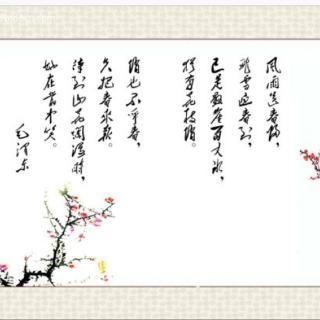 風雨送春归，
飛雪迎春到，
已是懸崖百丈冰，
犹有花枝俏。
俏也不争春，
只把春来报。
待到山花烂漫时，
她在丛中笑。
毛泽东